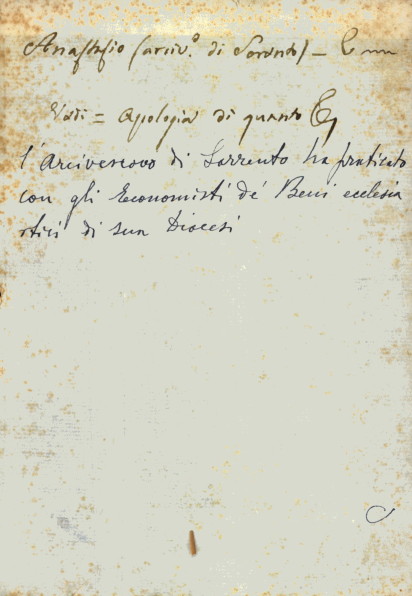 Anastasio (arciv.o di Sorrento) –
Vedi = Apologia di quanto
l'Arcivescovo di Sorrento ha praticato
con gli Economisti de' Beni ecclesia
stici di sua Diocesi